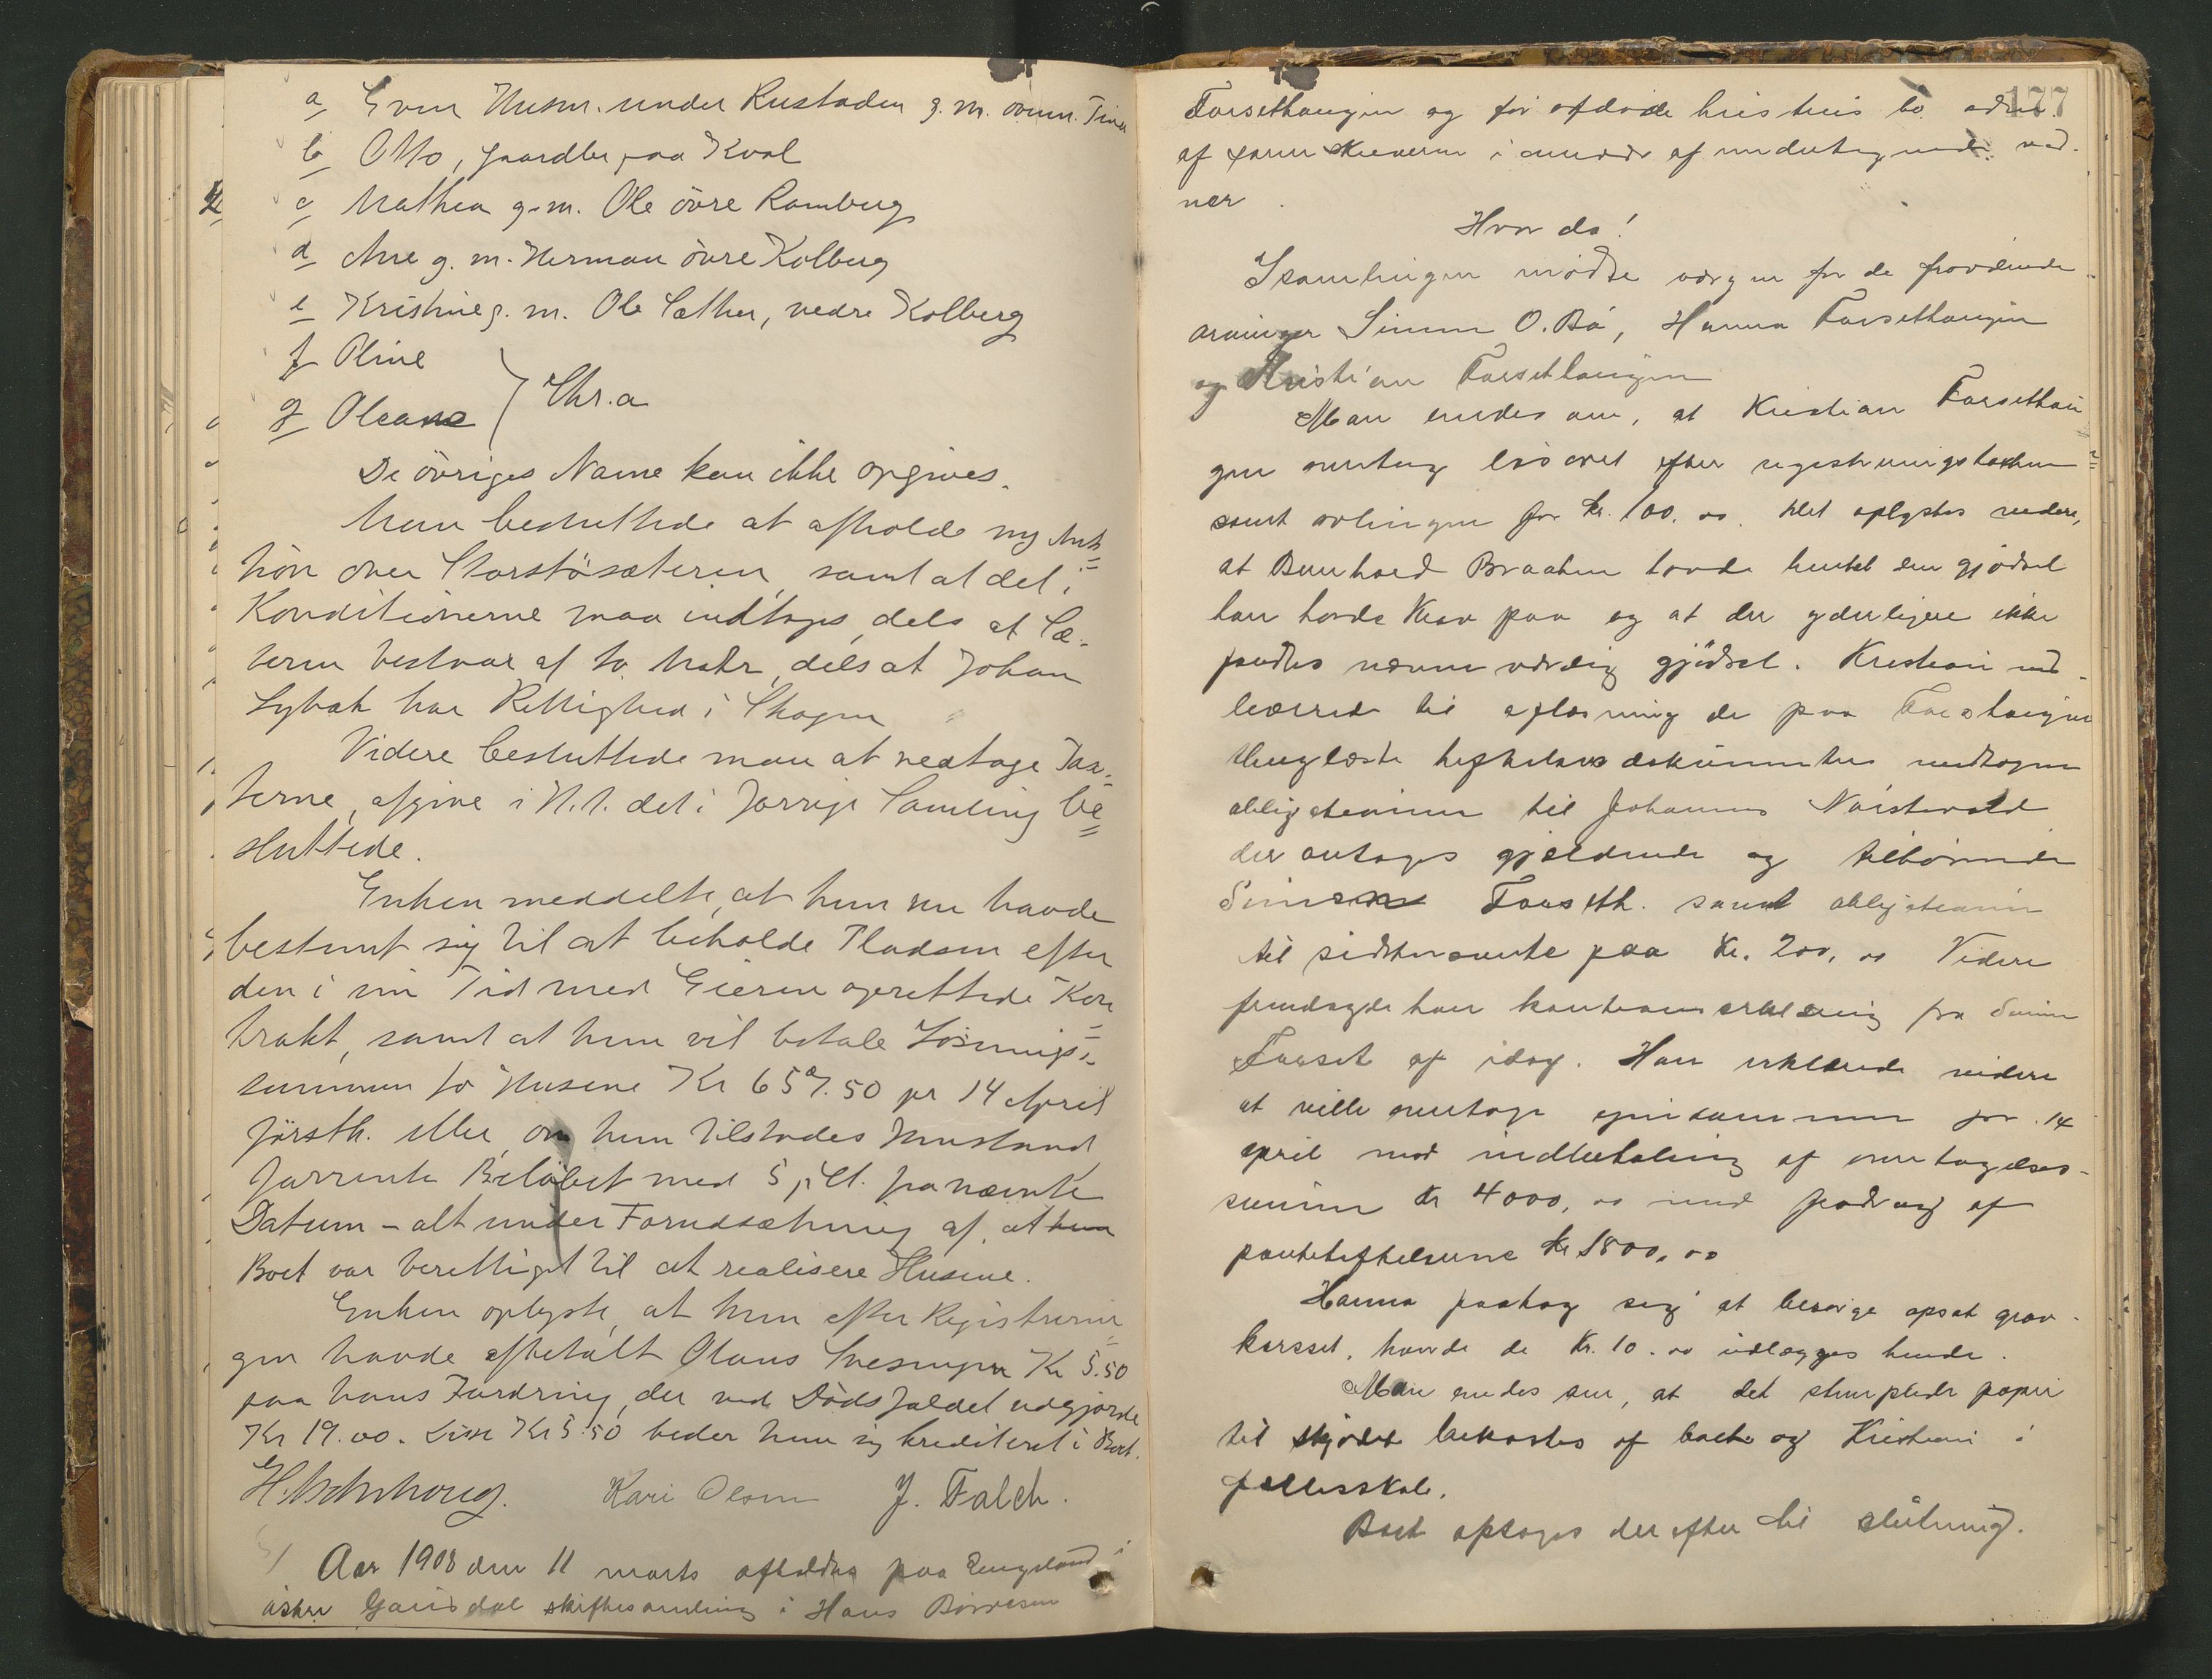 a Even Husm. under Rustaden g. m. ovenn. Tina
b Otto, gaardbr. paa Kval
c Mathea g. m. Ole övre Ramberg
d Ane g. m. Herman övre Kolberg
e Kristine g. m. Ole Sæther, nedre Kolberg
f Oline
g Oleane } Chr.a
De övriges Navne kan ikke opgives.
Man besluttede at afholde ny Auk=
tion over Storstösæteren, samt at det i
Konditionerne maa indtages, dels at Sæ-
teren bestaar af to Matr., dels at Johan
Lybæk har Rettighed i Skogen
Videre besluttede man at vedtage Tax-
terne, afgive i H. t. det i forrige Samling be=
sluttede.
Enken meddelte, at hun nu havde
bestemt sig til at beholde Pladsen efter
den i sin Tid med Eieren oprettede Kon=
trakt, samt at hun vil betale Løsnings-
summen for Husene Kr 657.50 pr 14 April
förstk. eller, om hun tilstodes Henstand
forrente Belöbet med 5 pCt. fra nævnte
Datum - alt under Forudsætning af, at
Boet var berettiget til at realisere Husene.
Enken oplyste, at hun efter Registrerin=
gen havde afbetalt Olaus Kr 5.50
paa hans Fordring, der ved Dödsfaldet udgjorde
Kr 19.00. Disse Kr 5.50 beder hun sig krediteret i Boet.
Kari Olsen J. Falch.
Aar 1908 den 11 marts afholdtes paa Engeland i
östre Gausdal skiftesamling i Hans Børresen
177
Forsethaugen og før afdøde hustrus bo
af i af undertegnede vid-
ner.
Hvorda!
I samlingen mødte værgen for de fraværende
arvinger Simen O. Bø, Hanna Forsethaugen
og Kristian Forsethaugen
Man enedes om, at Kristian Forsethau=
gen overtog løsøret efter registreringstaksten
samt avlingen for kr. 100.00. Det oplystes videre,
at Bernhard Braaten havde hentet den gjødsel
han havde krav paa og at der yderligere ikke
fandtes nævneværdig gjødsel. Kristian
leverede til aflæsning de paa Forsethaugen
thinglæste heftelsesdokumenter undtagen
obligationen til Johannes
der antages gjældende og tilhørende
Simen Forseth. samt obligation
til sidstnævnte paa kr. 200,00 Videre
fremlagde han kautionserklæring fra Simen
Forset af idag. Han erklærede videre
at ville overtage eiendommen pr. 14
april mod indbetaling af overtagelses-
summen kr 4000,00 med fradrag af
panteheftelserne kr 1800,00
Hanna paatog sig at besørge opsat grav-
korset, hvorfor de kr. 10.00 udlægges hende.
Man enedes om, at det stemplede papir
til skjødet bekostes af boet og Kristian i
fællesskab.
Boet optages derefter til slutning.